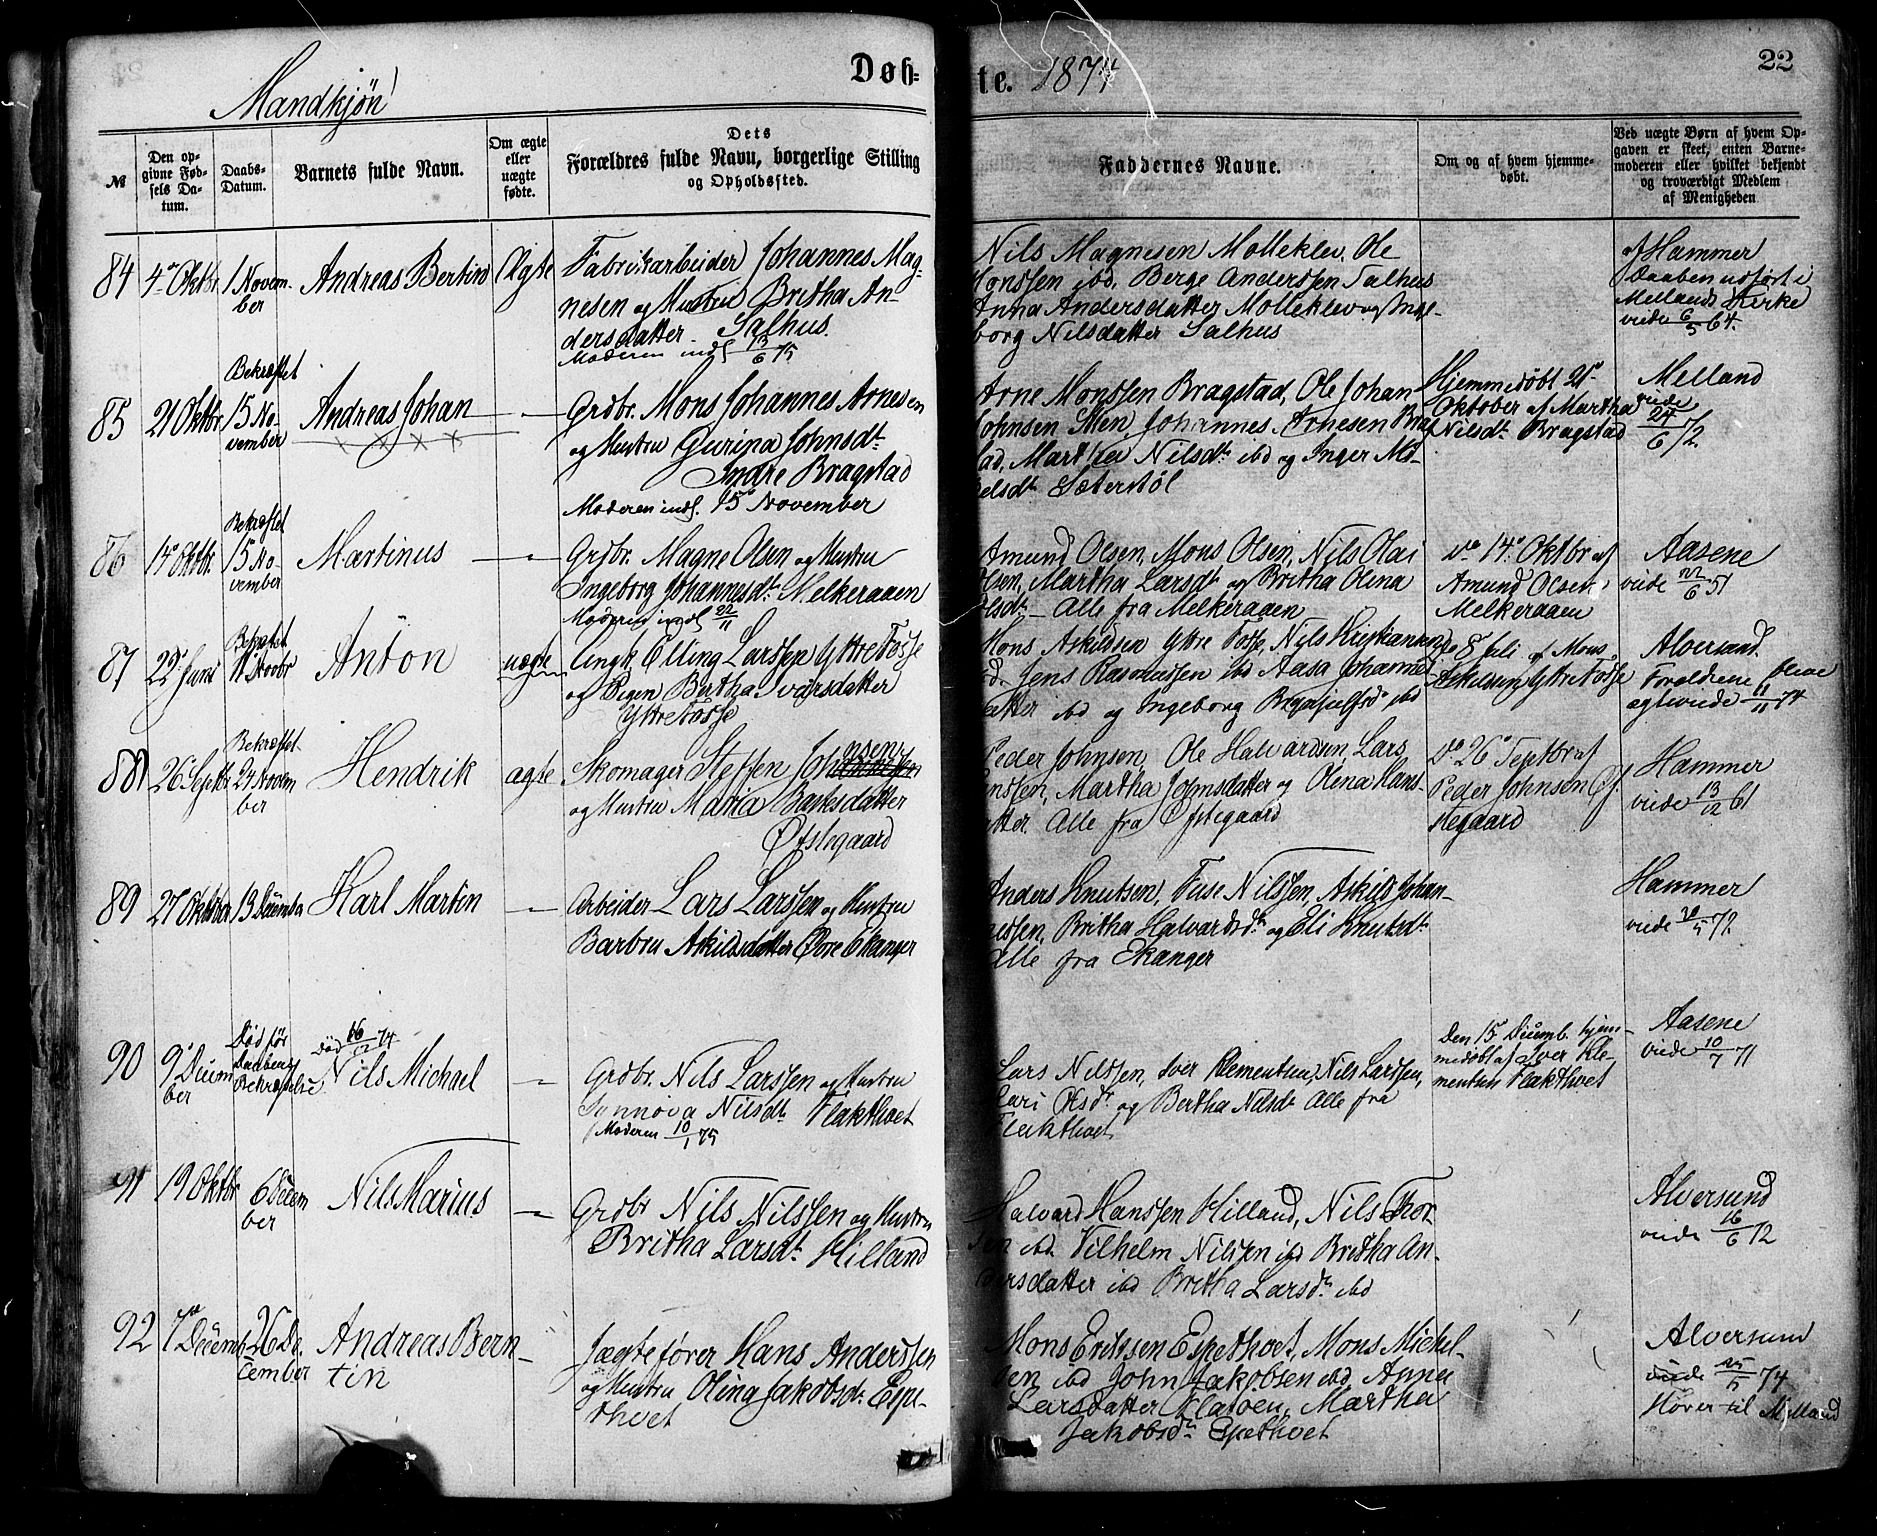 Mandkjøn
Døb=
te. 1874
22
№
Den op-
givne Fød-
sels Da-
tum.
Daabs-
Datum.
Barnets fulde Navn.
Om ægte
eller
uægte
fødte.
Dets
Forældres fulde Navn, borgerlige Stilling
og Opholdssted.
Faddernes Navne.
Om og af hvem hjemme-
døbt.
Ved uægte Børn af hvem Op-
gaven er skeet, enten Barne-
moderen eller hvilket bekjendt
og troværdigt Medlem
af Menigheden
84
4de Oktbr
1 Novem-
ber
Andreas Bertin
Ægte
Fabrikarbeider Johannes Mag-
nesen og Hustru Britha An-
dersdatter. Salhus.
Moderen indl 13/6 75
Nils Magnesen Molleklev, Ole
Monssen ibd, Berge Anderssen Salhus
Anna Andersdatter Molleklev og Inge-
borg Nilsdatter Salhus
af Hammer
Daaben udført i
Mellands Kirke
viede 6/5 64.
85
21 Oktbr
Bekræftet
15 No-
vember
Andreas Johan
Grdbr. Mons Johannes Arnesen
og Hustru Gurina Johnsdt.
Indre Bragstad
Moderen indl. 15 November
Arne Monssen Bragstad, Ole Johan
Johnsen Johannes Arnesen Brag
stad, Martha Nilsdt. ibd og Inger
elsdt. Sæterstøl
Hjemmedøbt 21de
Oktober af Martha
Nilsdt. Bragstad
Melland
viede
24/6 72
86
14 Oktbr.
Bekræftet
15 No-
vember
Martinus
Grdbr. Magne Olsen og Hustru
Ingeborg Johannesdt. Melkeraaen
Moderen indl 22/11
Amund Olsen, Mons Olsen, Nils Olai
Olsen, Martha Larsdt og Britha Olina
olsdt — Alle fra Melkeraaen
do 14. Oktbr af
Amund Olsen
Melkeraaen
Aasene
viede 22/6 51
87
22 Juni
Bekræftet
Anton
uægte
Ungk. Elling Larssen Yttre Fosse
og Pigen Bertha Ivarsdatter
Yttre Fosse
Mons Askildsen Yttre Fosse, Nils Kristiannsen
Jens Rasmussen ibd Aasa Johannes
datter ibd og Ingeborg ibd
do 8 Juli af Mons
Askildsen Yttre Fosse
Alversund.
Foreldrene bleve
11/11 74
88
26 Septbr
Bekræftet
24 Novem
ber
Hendrik
ægte
Skomager Steffen Johnsen
og Hustru Maria Baksdatter
Øfstegaard
Peder Johnsen, Ole Halvardsen, Lars
Martha Johnsdatter og Olena Hans-
datter. Alle fra Øfstegaard
do 26 Septbr af
Peder Johnsen Øf-
stegaard
Hammer
viede 13/12 61
89
27 Oktober
13 Decemb
Karl Martin
Arbeider Lars Larssen og Hustru
Barbru Askildsdatter Øvre Ekanger
Anders Knutsen, Tuse Nilssen, Askild Johan-
nessen, Britha Halvardsdt. og Eli Knutsdt.
Alle fra Ekanger
Hammer
viede 30/5 72
90
9 Decem
ber
Død før
Daabens
Bekræftelse
Død 16/12 74
Nils Michael
Grdbr. Nils Larssen og Hustru
Synnøva Nilsdt. Flakthvet
Moderen 10/1 75
Lars Nilssen, Iver Klementsen, Nils Larssen,
Kari Olsdt. og Bertha Nilsdt. Alle fra
Flakthvet
Den 15 Decemb. hjem-
medøbt af Iver Kle-
mentsen Flakthvet
Aasene
viede 10/7 71
91
19 Oktbr
6 Decem
ber
Nils Marius
Grdbr Nils Nilssen og Hustru
Britha Larsdt. Hilland
Halvard Hanssen Hilland, Nils Thor-
sen ibd Vilhelm Nilssen ibd Britha An-
dersdatter ibd Britha Larsdt. ibd
Alversund
viede 16/6 72
92
7de Decemb
26 De-
cember
Andreas Bern-
tin
Jægtefører Hans Anderssen
og Hustru Olina Jakobsdt. Espe-
thvet
Mons Erikssen Espethvet, Mons Mickel-
sen ibd John Jakobsen ibd Anna
Larsdatter Flatøen, Martha
Jakobsdt. Espethvet
Alversund
viede 25/5 74
Hører til Melland